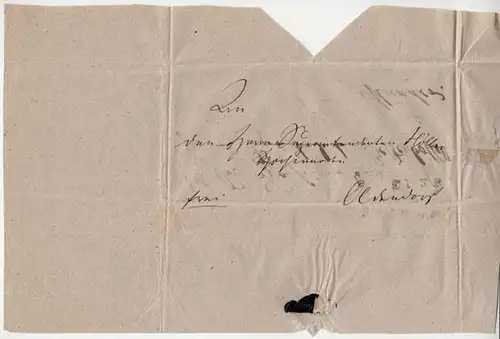 An
den Herrn Superintendenten
Hochwürden
frei Oldendorf